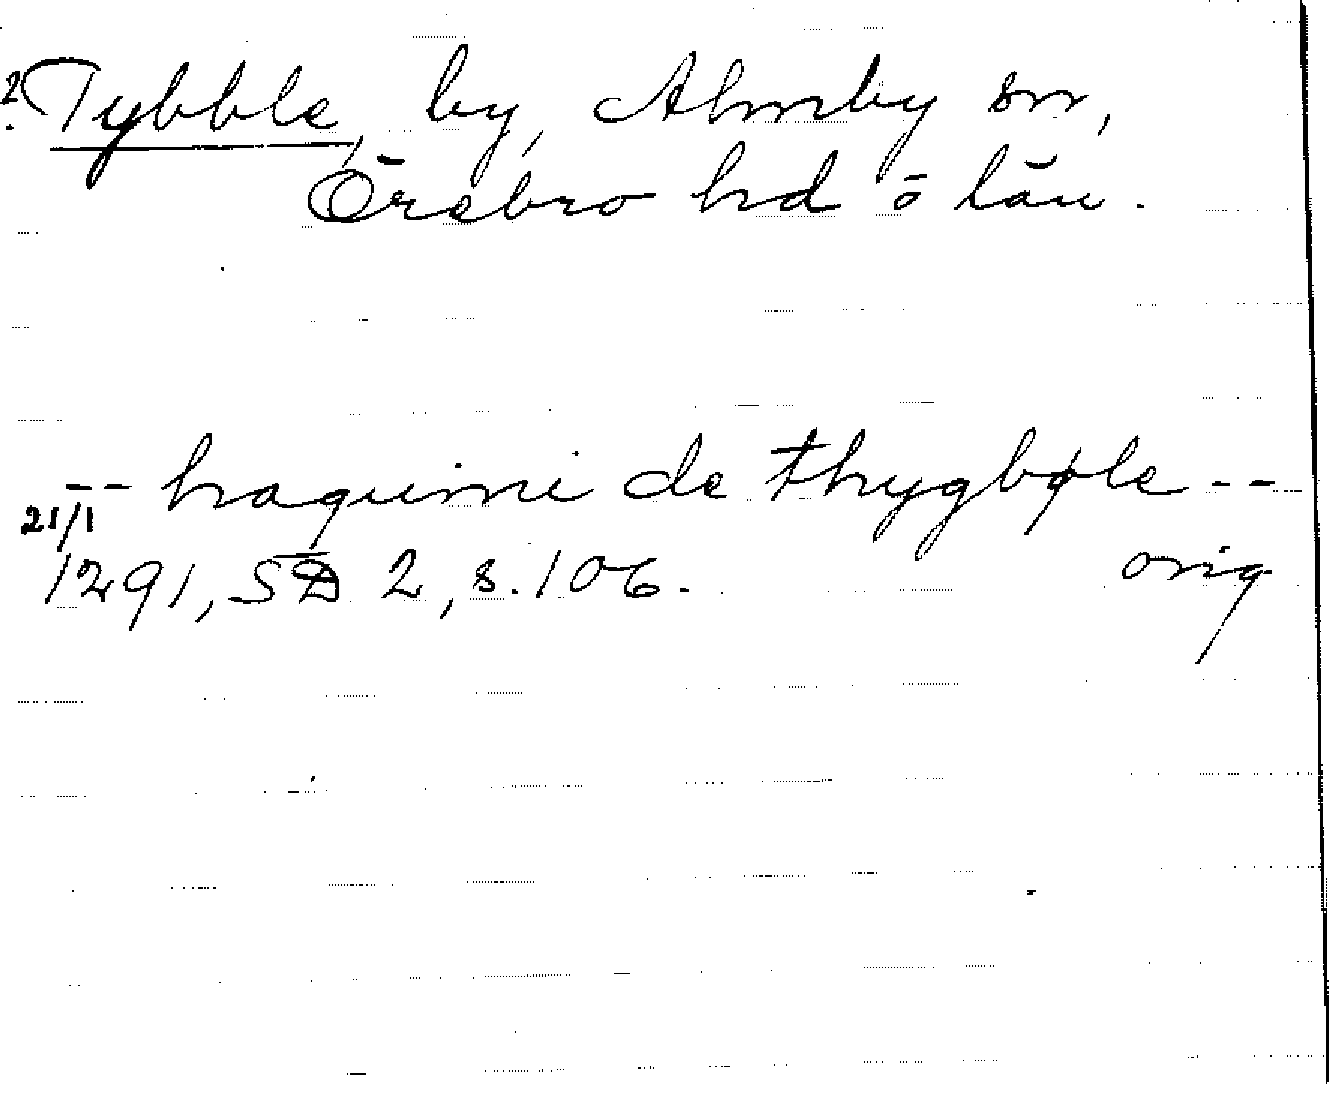 2. Tybble, by, Almby sn,
Örebro hd o län.
-- haquini de thygbøle --
21/1
1291, SD 2, s. 106. orig